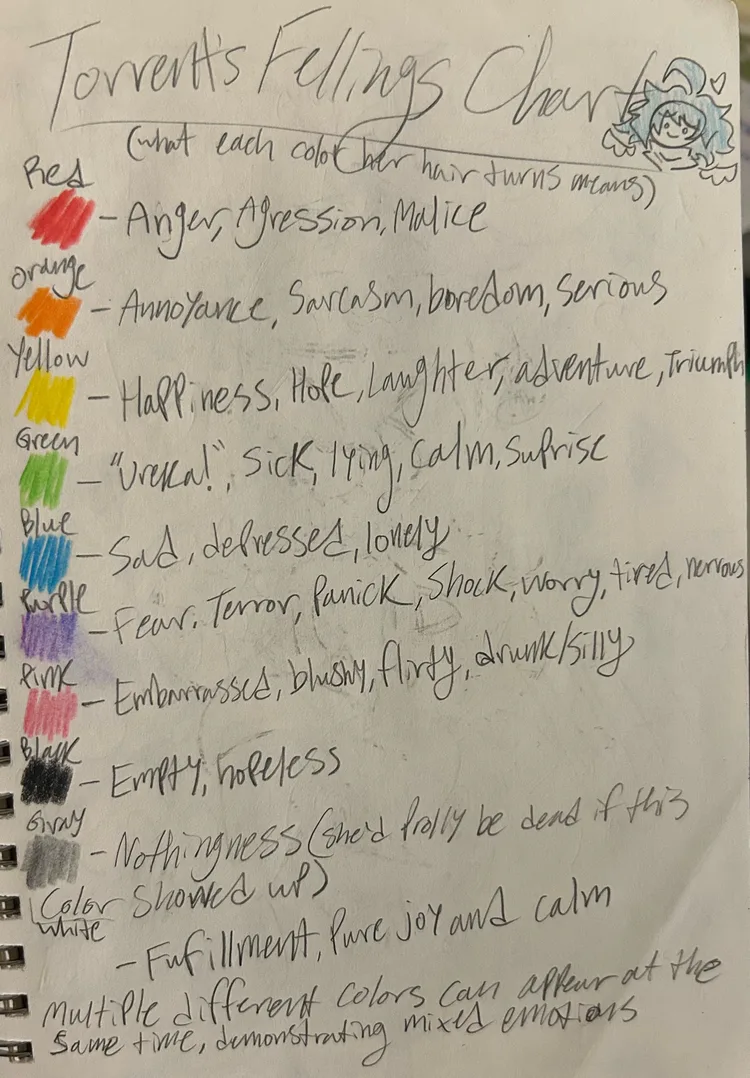 Torrent's Fellings Chart
(what each color her hair turns means)
Red
- Anger, Agression, Malice
Orange
- Annoyance, Sarcasm, boredom, Serious
Yellow
- Happiness, Hope, Laughter, adventure, Triumph
Green
- "Ureka!", Sick, lying, Calm, Suprise
Blue
- Sad, depressed, lonely
Purple
- Fear, Terror, Panick, Shock, worry, tired, nervous
Pink
- Embarrassed, blushy, flirty, drunk/silly
Black
- Empty, hopeless
Gray
- Nothingness (she'd prolly be dead if this
Color Showed up)
White
- Fufillment, Pure joy and calm
Multiple different colors can appear at the
same time, demonstrating mixed emotions